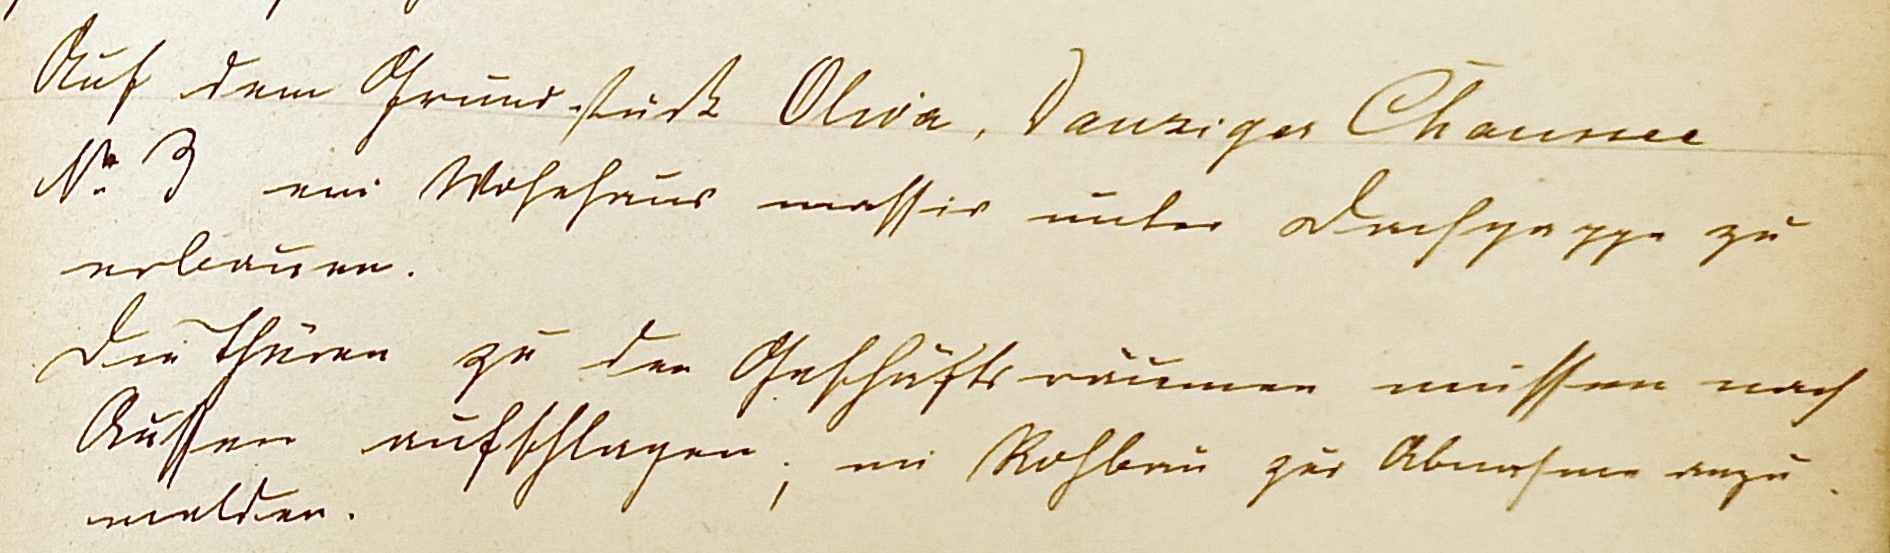 Auf dem Grundstück Oliva, Danziger Chaussee
No. 3 ein Wohnhaus massiv unter Dachpappe zu
erbauen.
Die Thüren zu den Geschäftsräumen müssen nach
Aussen aufschlagen; im Rohbau zur Abnahme anzu
melden.